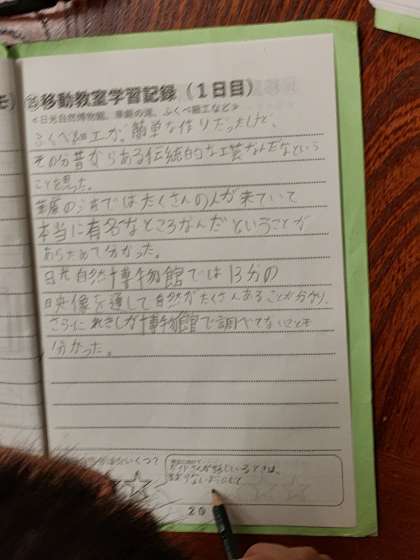 移動教室学習記録（１日目）
＜日光自然博物館、華厳の滝、ふくべ細工など＞
ふくべ細工が、簡単な作りだったけど、
その分昔からある伝統的な工芸なんだなという
ことを思った。
華厳のたきではたくさんの人が来ていて
本当に有名なところなんだということが
あらためて分かった。
日光自然博物館では13分の
映像を通して自然がたくさんあることが分かり、
さらに れきしが博物館で調べてないことも
分かった。
いくつ？
ガイドさんが話しているときは、
20